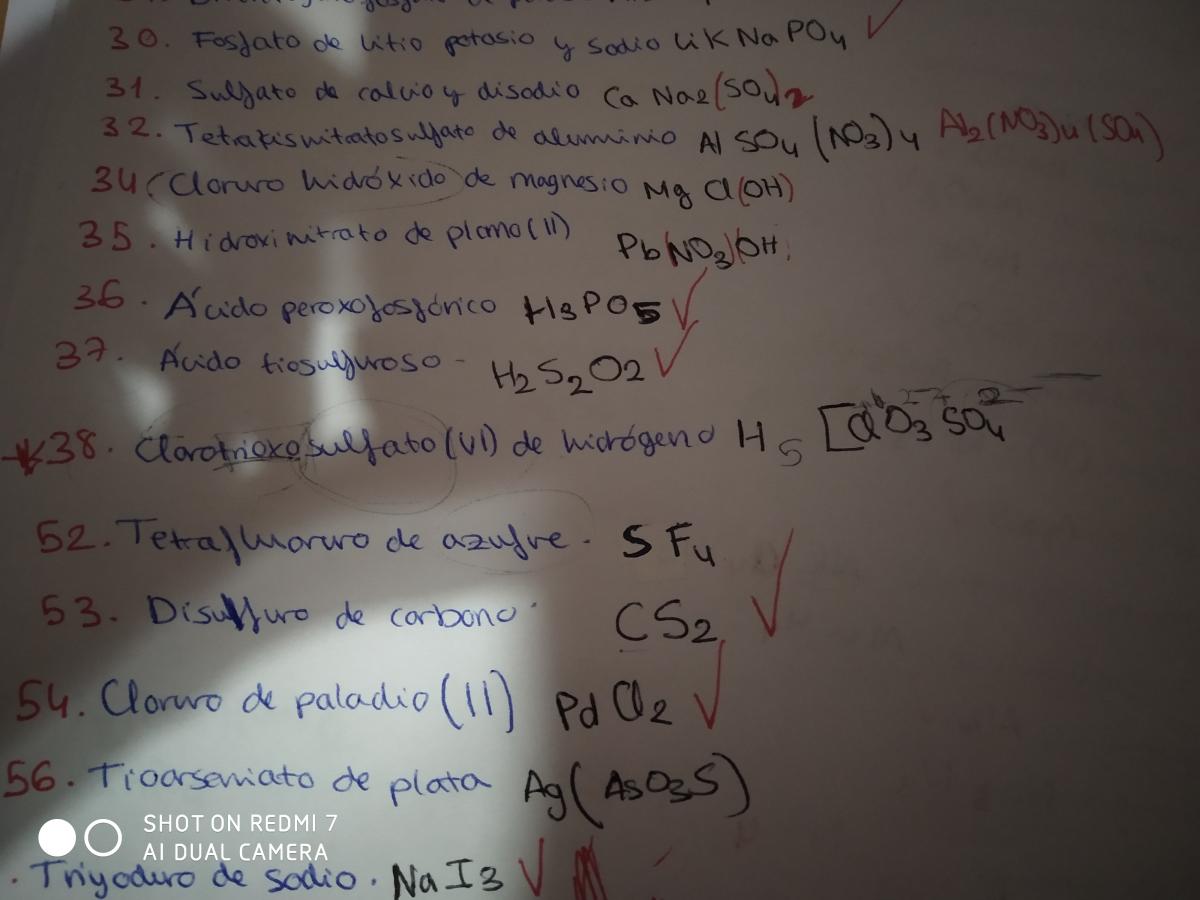 30. Fosfato de litio potasio y sodio LiKNaPO4
31. Sulfato de calcio y disodio Ca Na2(SO4)2
32. Tetrakisnitratosulfato de aluminio Al SO4 (NO3)4 Al2(NO3)4(SO4)
34 (Cloruro hidróxido) de magnesio Mg Cl(OH)
35. Hidroxinitrato de plomo(II) Pb(NO3)OH
36. Ácido peroxofosfórico H3PO5
37. Ácido tiosulfuroso - H2S2O2
38. Clorotrioxosulfato(VI) de hidrógeno H5 [ClO3 SO4
52. Tetrafluoruro de azufre. SF4
53. Disulfuro de carbono. CS2
54. Cloruro de paladio(II) PdCl2
56. Tioarseniato de plata Ag(AsO3S)
SHOT ON REDMI 7
AI DUAL CAMERA
. Triyoduro de sodio. NaI3